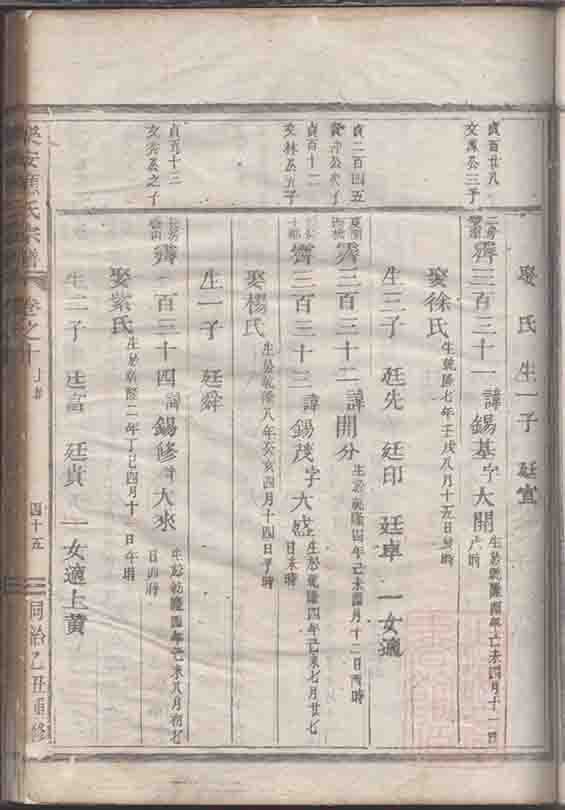 娶 氏 生一子 廷宣
貞百廿八
文 公三子
霽三百三十一 諱錫基字大開 生於乾隆四年己未四月十一日 時
娶徐氏 生乾隆七年壬戌八月十五日 時
生三子 廷先 廷印 廷車 一女適
貞二百四五
公次子
霽三百三十二 諱開分 生於乾隆四年己未四月十二日酉時
貞百十二
文林公五子
霽三百三十三 諱錫茂字大盛 生於乾隆四年己未七月廿七日未時
娶楊氏 生於乾隆八年癸亥四月十四日子時
生一子 廷舜
貞五十三
文 公之子
霽三百三十四 諱錫修字大來 生於乾隆四年己未八月初七日 時
娶紫氏 生於乾隆二年丁巳四月十 日午時
生二子 廷富 廷貞 一女適上黃
樂安 氏宗譜
卷之十
四十五
同治乙丑重修